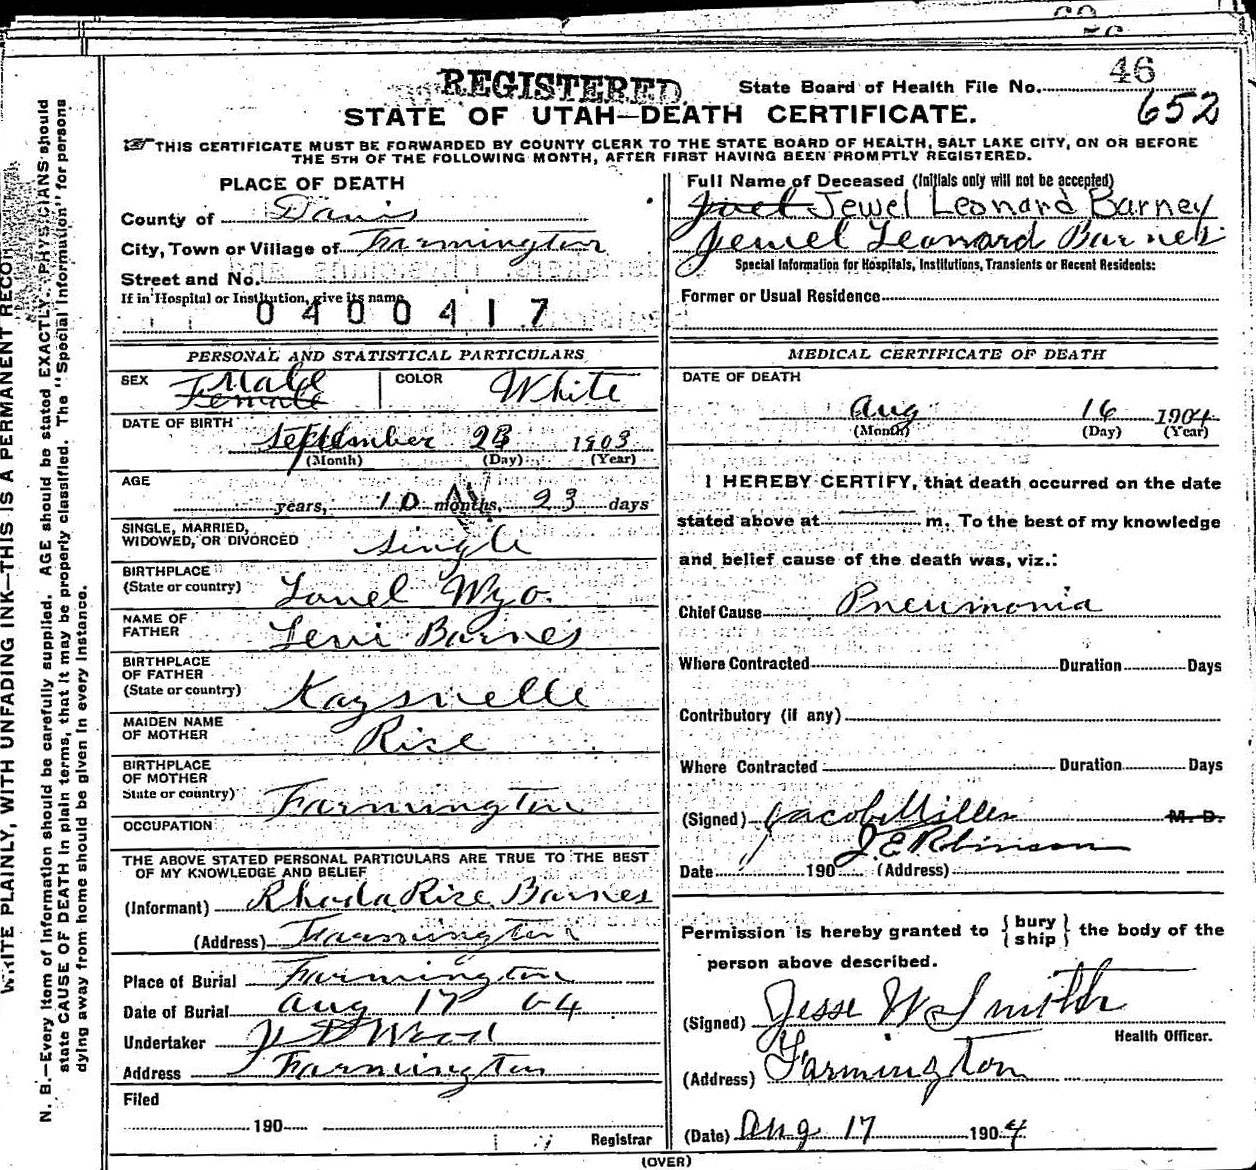 46
REGISTERED
State Board of Health File No.
652
STATE OF UTAH—DEATH CERTIFICATE.
THIS CERTIFICATE MUST BE FORWARDED BY COUNTY CLERK TO THE STATE BOARD OF HEALTH, SALT LAKE CITY, ON OR BEFORE
THE 5TH OF THE FOLLOWING MONTH, AFTER FIRST HAVING BEEN PROMPTLY REGISTERED.
WRITE PLAINLY, WITH UNFADING INK—THIS IS A PERMANENT RECORD
N. B.—Every item of information should be carefully supplied. AGE should be stated EXACTLY. PHYSICIANS should
state CAUSE OF DEATH in plain terms, that it may be properly classified. The "Special Information" for persons
dying away from home should be given in every instance.
PLACE OF DEATH
County of Davis
City, Town or Village of Farmington
Street and No.
If in Hospital or Institution, give its name
0400417
PERSONAL AND STATISTICAL PARTICULARS
SEX Male
Female
COLOR White
DATE OF BIRTH
September 23 1903
(Month) (Day) (Year)
AGE
years, 10 months, 23 days
SINGLE, MARRIED,
WIDOWED, OR DIVORCED single
BIRTHPLACE
(State or country) Lovel Wyo.
NAME OF
FATHER Levi Barnes
BIRTHPLACE
OF FATHER
(State or country) Kaysville
MAIDEN NAME
OF MOTHER Rise
BIRTHPLACE
OF MOTHER
State or country) Farmington
OCCUPATION
THE ABOVE STATED PERSONAL PARTICULARS ARE TRUE TO THE BEST
OF MY KNOWLEDGE AND BELIEF
(Informant) Rhoda Rise Barnes
(Address) Farmington
Place of Burial Farmington
Date of Burial Aug 17 04
Undertaker Wood
Address Farmington
Filed
190
Registrar
Full Name of Deceased (Initials only will not be accepted)
Joel Jewel Leonard Barney
Jewel Leonard Barnes
Special Information for Hospitals, Institutions, Transients or Recent Residents:
Former or Usual Residence
MEDICAL CERTIFICATE OF DEATH
DATE OF DEATH
Aug 16 1904
(Month) (Day) (Year)
I HEREBY CERTIFY, that death occurred on the date
stated above at m. To the best of my knowledge
and belief cause of the death was, viz.:
Chief Cause Pneumonia
Where Contracted Duration Days
Contributory (if any)
Where Contracted Duration Days
(Signed) Jacob Miller M. D.
J. E. Robinson
Date 190 (Address)
Permission is hereby granted to { bury
ship } the body of the
person above described.
(Signed) Jesse W Smith
Health Officer.
(Address) Farmington
(Date) Aug 17 1904
(OVER)